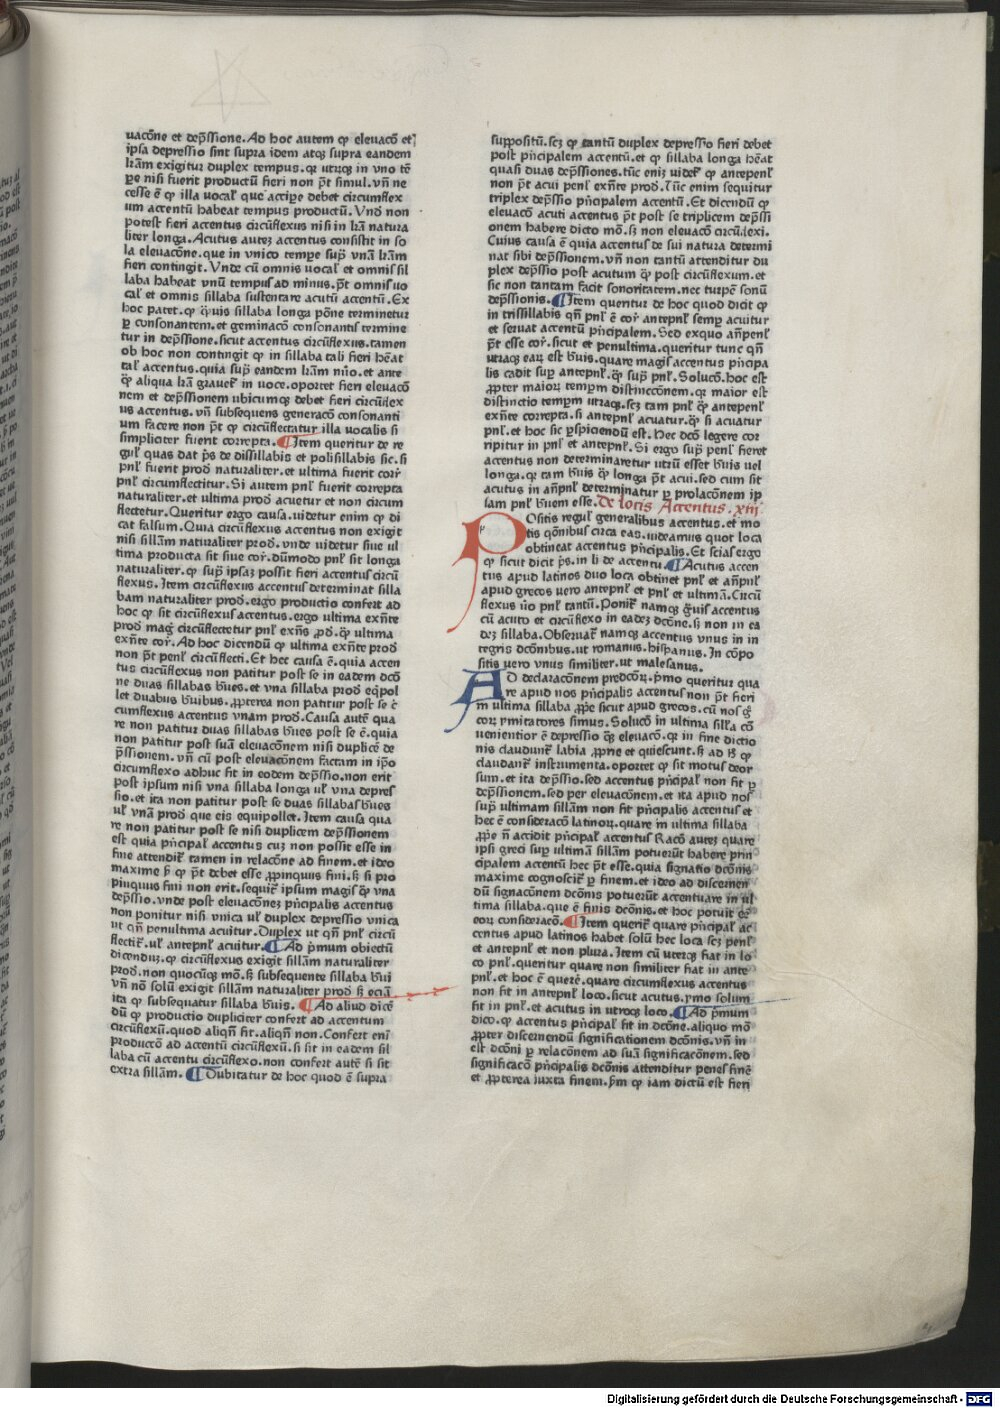 uacōne et dep̄ssione. Ad hoc autem ꝙ eleuacō et
ipsa depressio sint supra idem atqꝫ supra eandem
lr̄am exigitur duplex tempus. qꝛ utrūqꝫ in uno tē
ꝑe nisi fuerit productū fieri non pōt simul. vn̄ ne
cesse ē ꝙ illa uocalꝭ que accipe debet circumflex
um accentū habeat tempus productū. Vnd̓ non
potest fieri accentus circūflexus nisi in lr̄a natura
liter longa. Acutus autez accentus consistit in so
la eleuacōne. que in vnico tempe sup̱ vnā lr̄am
fieri contingit. Vnde cū omnis uocalꝭ et omnis sil
laba habeat vnū tempus ad minus. pōt omnis uo
calꝭ et omnis sillaba sustentare acutū accentū. Ex
hoc patet. ꝙ quis sillaba longa pōne terminetur
ꝑ consonantem. et geminacō consonantis termine
tur in dep̄ssione. sicut accentus circūflexus. tamen
ob hoc non contingit ꝙ in sillaba tali fieri hēat
talꝭ accentus. quia sup̱ eandem lr̄am nn̄o. et ante
ꝗ̄ aliqua lr̄a grauetꝛ in uoce. oportet fieri eleuacō
nem et dep̄ssionem ubicumqꝫ debet fieri circūflex
us accentus. vn̄ subsequens generacō consonanti
um facere non pōt ꝙ circūflectatur illa uocalis si
simpliciter fuerit correpta. ¶ Item queritur de re
gulꝭ quas dat p̄s de dissillabis et polisillabis sic. si
pnl̄ fuerit prod̓ naturaliter. et ultima fuerit corꝛ̄
pnl̄ circūflectitur. Si autem pnl̄ fuerit correpta
naturaliter. et ultima prod̓ acuetur et non circum
flectetur. Queritur ergo causa. uidetur enim ꝙ di
cat falsum. Quia circūflexus accentus non exigit
nisi sillām naturaliter prod̓. vnde uidetur siue ul
tima producta sit siue cor̄. dūmodo pnl̄ sit longa
naturaliter. ꝙ sup̱ ipsaꝫ possit fieri accentus circū
flexus. Item circūflexus accentus determinat silla
bam naturaliter prod̓. ergo productio confert ad
hoc ꝙ sit circūflexus accentus. ergo ultima exn̄te
prod̓ magꝭ circūflectetur pnl̄ exn̄s ꝓd̓. ꝗ̄ ultima
exn̄te cor̄. Ad hoc dicendū ꝙ ultima exn̄te prod̓
non pōt penl̄ circūflecti. Et hec causa ē. quia accen
tus circūflexus non patitur post se in eadem dcō
ne duas sillabas bꝛ̄ues. et vna sillaba prod̓ eq̱pol
let duabus bꝛ̄uibus. ꝓpterea non patitur post se c̓
cumflexus accentus vnam prod̓. Causa autē qua
re non patitur duas sillabas bꝛ̄ues post se ē. quia
non patitur post suā eleuacōnem nisi duplicē de
p̄ssionem. vn̄ cū post eleuacōnem factam in ip̄o
circumflexo adhuc fit in eodem dep̄ssio. non erit
post ipsum nisi vna sillaba longa ul̄ vna depres
sio. et ita non patitur post se duas sillabas bꝛ̄ues
ul̄ vnā prod̓ que eis equipollet. Item causa qua
re non patitur post se nisi duplicem dep̄ssionem
est quia pn̄cipalꝭ accentus cuꝫ non possit esse in
fine attenditꝛ tamen in relacōne ad finem. et ideo
maxime ꝓ ꝙ pōt debet esse ꝓpinquus fini. sꝫ si pro
pinquus fini non erit. sequitꝛ ipsum magis ꝗ̄ vna
dep̄ssio. vnde post eleuacōneꝫ pn̄cipalis accentus
non ponitur nisi vnica ul̄ duplex depressio vnica
ut qn̄ penultima acuitur. Duplex ut qn̄ pnl̄ circū
flectitꝛ. ul̄ antepnl̄ acuitur. ¶ Ad p̄mum obiectū
dicenduꝫ. ꝙ circūflexus exigit sillām naturaliter
prod̓. non quocūqꝫ mō. sꝫ subsequente sillaba bꝛ̄ui
vn̄ nō solū exigit sillām naturaliter prod̓ sꝫ eciā
ita ꝙ subsequatur sillaba bꝛ̄uis. ¶ Ad aliud dicē
dū ꝙ productio dupliciter confert ad accentum
circūflexū. quod aliqn̄ fit. aliqn̄ non. Confert eni
productō ad accentū circūflexū. si sit in eadem sil
laba cū accentu circūflexo. non confert autē si sit
extra sillām. ¶ Dubitatur de hoc quod ē supra
suppositū. scꝫ ꝙ tantū duplex depressio fieri debet
post pn̄cipalem accentū. et ꝙ sillaba longa hēat
quasi duas dep̄ssiones. tūc eniꝫ uidetꝛ ꝙ antepenl̄
non pōt acui penl̄ exn̄te prod̓. Tūc enim sequitur
triplex dep̄ssio pn̄cipalem accentū. Et dicendū ꝙ
eleuacō acuti accentus pōt post se triplicem dep̄ssi
onem habere dicto mō. sꝫ non eleuacō circūflexi.
Cuius causa ē quia accentus de sui natura determi
nat sibi dep̄ssionem. vn̄ non tantū attenditur du
plex dep̄ssio post acutum ꝙ̄ post circūflexum. et
sic non tantam facit sonoritatem. nec turpē sonū
dep̄ssionis. ¶ Item queritur de hoc quod dicit ꝙ
in trissillabis qn̄ pnl̄ ē cor̄ antepnl̄ semp̱ acuitur
et seruat accentū pn̄cipalem. Sed exquo an̄penl̄
pōt esse cor̄. sicut et penultima. queritur tunc qn̄
utraqꝫ earꝫ est bꝛ̄uis. quare magis accentus pn̄cipa
lis cadit sup̱ antepnl̄. ꝗ̄ sup̱ pnl̄. Solucō. hoc est
ꝓpter maiorꝫ temp̱m distinccōnem. qꝛ maior est
distinctio temp̱m utraqꝫ. scꝫ tam pnl̄ ꝗ̄ antepenl̄
exn̄te correpta. si antepnl̄ acuatur. ꝗ̄ si acuatur
pnl̄. et hoc sic ꝑspiciendū est. Hec dcō legere cor
ripitur in pnl̄ et antepnl̄. Si ergo sup̱ penl̄ fieret
accentus non determinaretur utrū esset bꝛ̄uis uel
longa. qꝛ tam bꝛ̄uis ꝗ̄ longa pōt acui. sed cum sit
acutus in an̄pnl̄ determinatur ꝑ prolacōnem ip
sam pnl̄ bꝛ̄uem esse. De locis Accentus. xiii
POsitis regulꝭ generalibus accentus. et mo
tis qōnibus circa eas. uideamus quot loca
obtineat accentus pn̄cipalis. Et scias ergo
ꝙ sicut dicit p̄s. in li de accentu. ¶ Acutus accen
tus apud latinos duo loca obtinet pnl̄ et an̄pnl̄
apud grecos uero antepnl̄ et pnl̄ et ultimā. Circū
flexus u̓o pnl̄ tantū. Ponitꝛ namqꝫ gͣuis accentus
cū acuto et circūflexo in eadeꝫ dcōne. sꝫ non in ea
deꝫ sillaba. Obseruatꝛ namqꝫ accentus vnus in in
tegris dcōnibus. ut romanus. hispanus. In cōpo
sitis uero vnus similiter. ut malesanus.
AD declaracōnem predcōrꝫ. p̄mo queritur qua
re apud nos pn̄cipalis accentus non pōt fieri
in ultima sillaba. ꝓpe sicut apud grecos. cū nos gͤ
corꝫ ymitatores simus. Solucō in ultima sill̄a cō
uenientior ē depressio ꝗ̄ eleuacō. qꝛ in fine dictio
nis claudunꝛ labia ꝓprie et quiescunt. sꝫ ad hͦ ꝙ
claudantꝛ instrumenta. oportet ꝙ sit motus deor
sum. et ita dep̄ssio. sed accentus pn̄cipalꝭ non fit ꝑ
dep̄ssionem. sed per eleuacōnem. et ita apud nos
sup̱ ultimam sillām non fit pn̄cipalis accentus et
hec ē consideracō latinorꝫ. quare in ultima sillaba
ꝓpe n̄ accidit pn̄cipalꝭ accentus Racō autez quare
ipsi greci sup̱ ultimā sillām potuerūt habere prin
cipalem accentū hec pōt esse. quia signatio dcōnis
maxime cognoscitꝛ ꝑ finem. et ideo ad discernen
dū signacōnem dcōnis potuerūt accentuare in ul
tima sillaba. que ē finis dcōnis. et hoc potuit eē
eorꝫ consideracō. ¶ Item queritꝛ quare pn̄cipalꝭ ac
centus apud latinos habet solū hec loca scꝫ penl̄
et antepnl̄ et non plura. Item cū uterqꝫ fiat in lo
co pnl̄. queritur quare non similiter fiat in ante
pnl̄. et hoc ē querē. quare circumflexus accentus
non fit in antepnl̄ loco. sicut acutus. p̄mo solum
fit in pnl̄. et acutus in utroqꝫ loco. ¶ Ad p̄mum
dico. ꝙ accentus pn̄cipalꝭ fit in dcōne. aliquo mō
ꝓpter discernendū significationem dcōnis. vn̄ in
est dcōni ꝑ relacōnem ad suā significacōnem. sed
significacō pn̄cipalis dcōnis attenditur penes finē
et ꝓpterea iuxta finem. p̄m ꝙ iam dictū est fieri
Digitalisierung gefördert durch die Deutsche Forschungsgemeinschaft - DFG